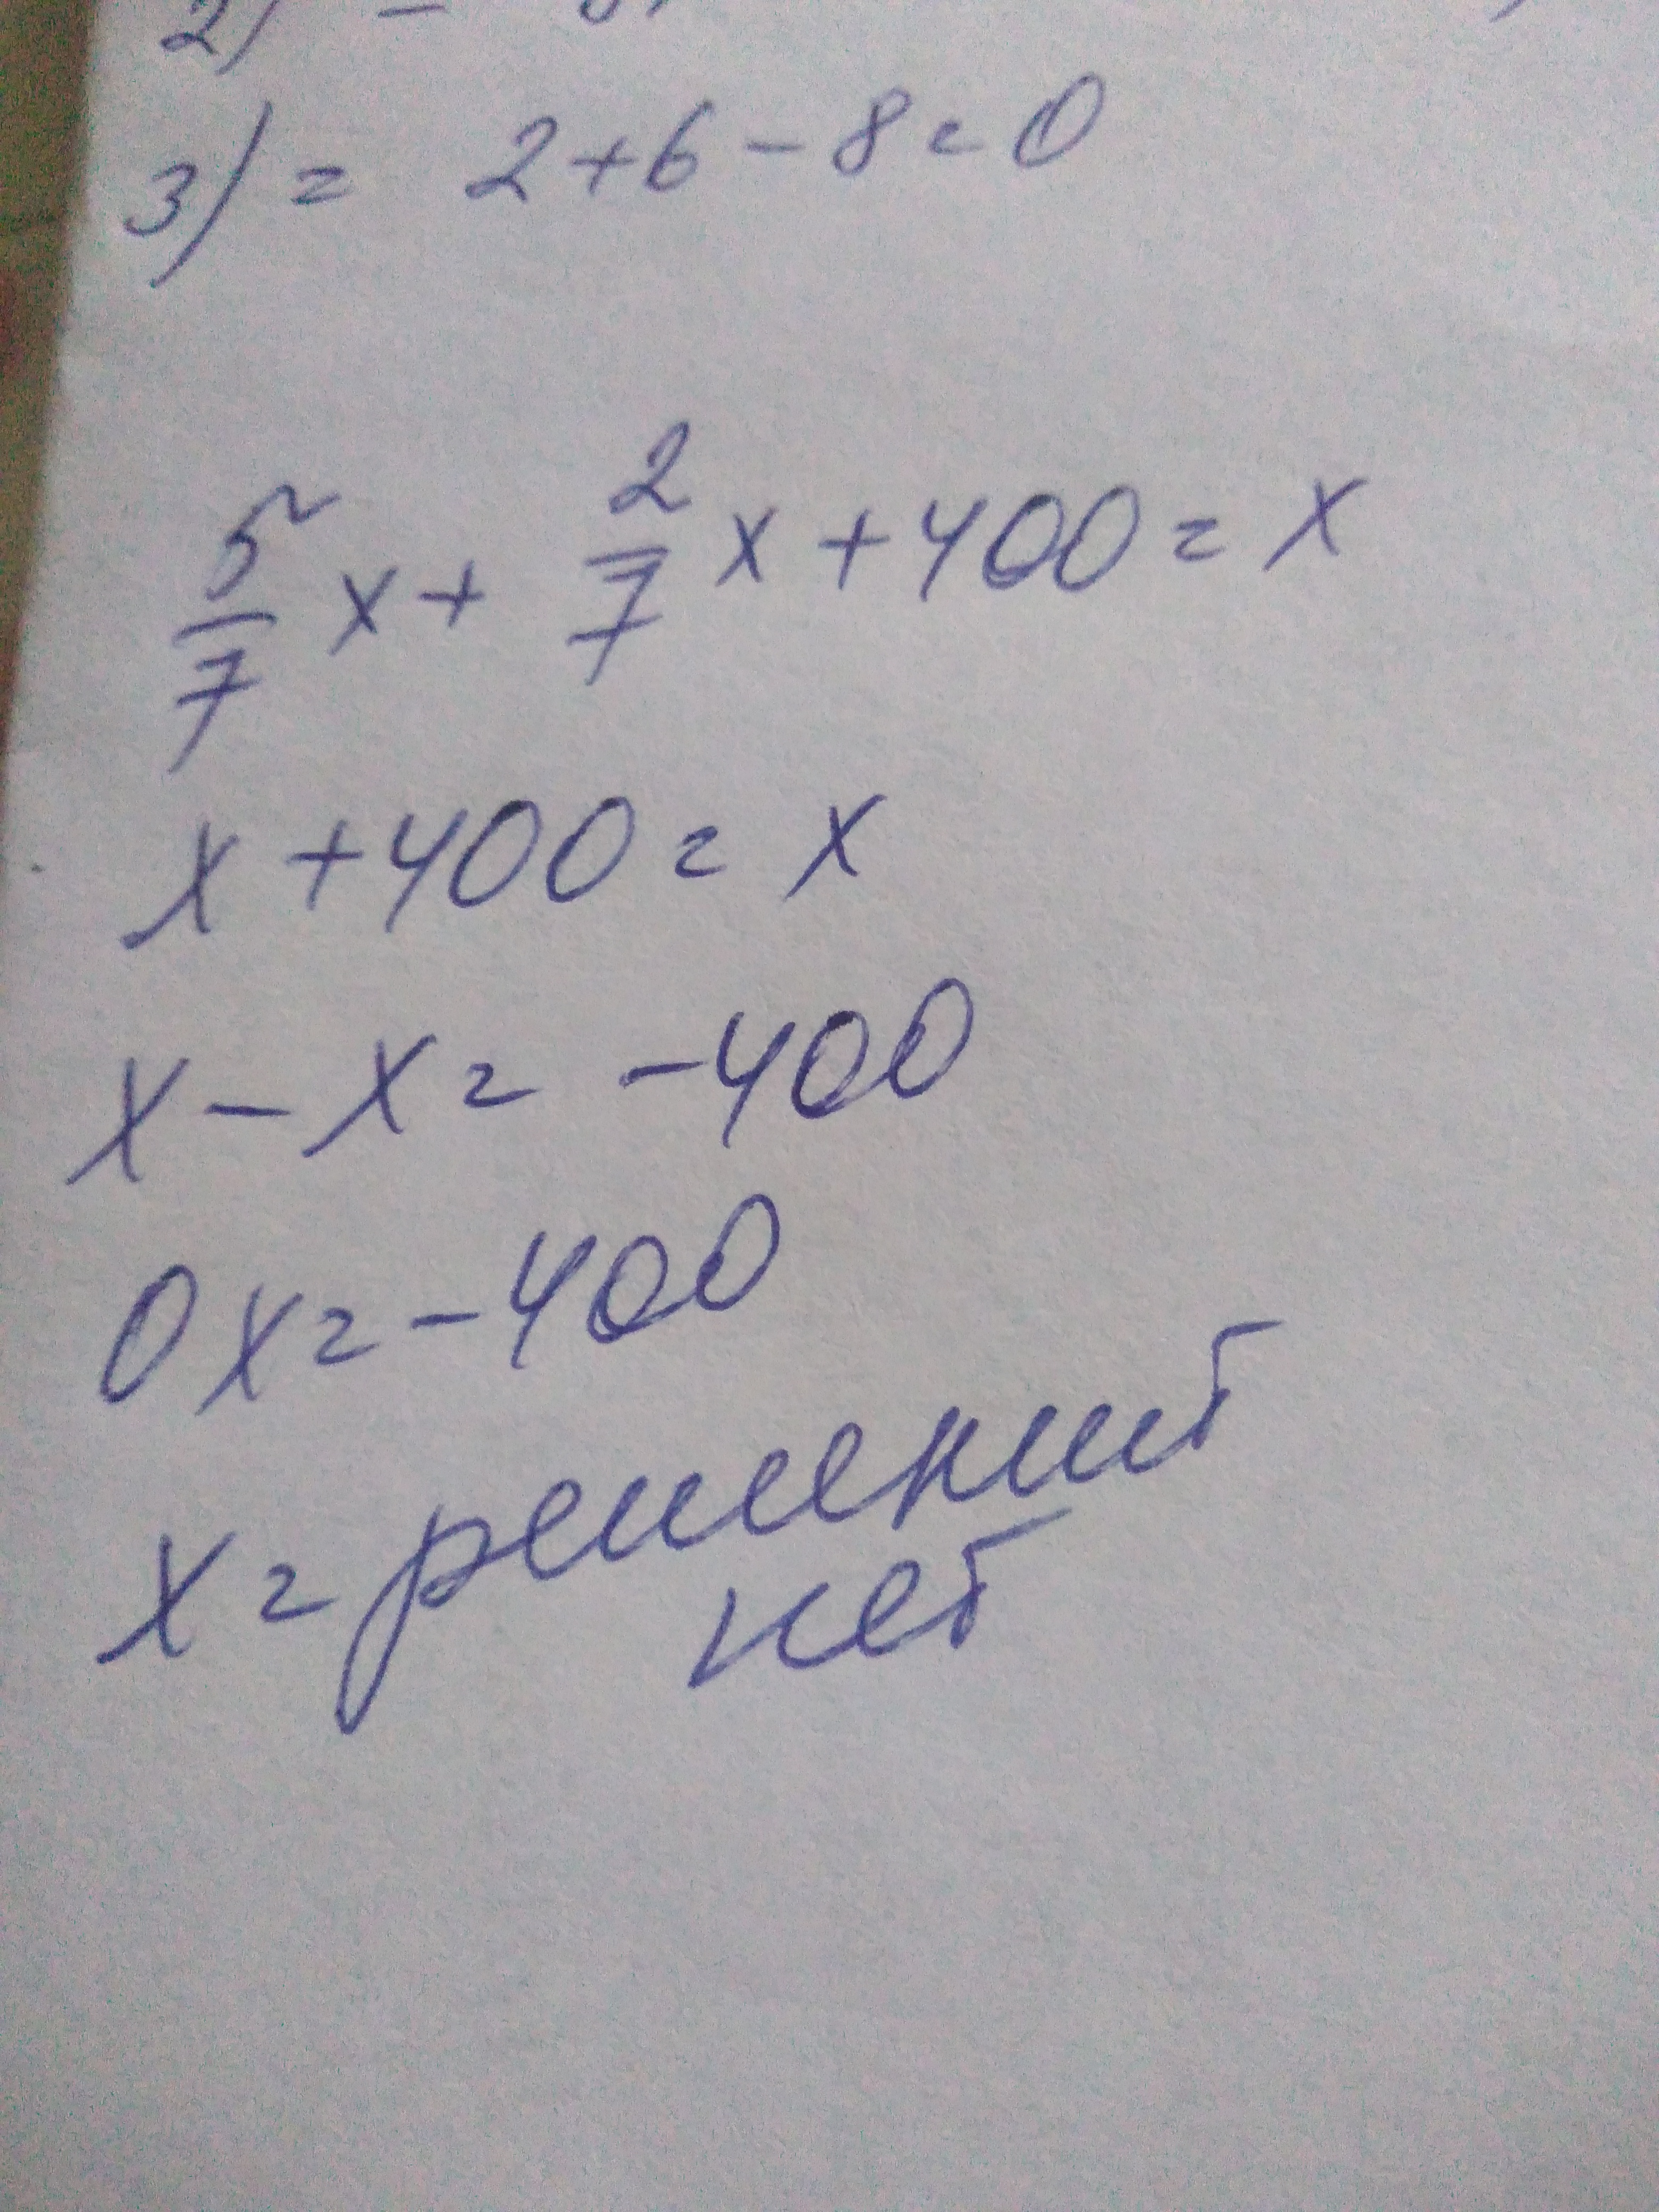 2) -
3) = 2+6-8=0
5/7 x + 2/7 x + 400 = x
x + 400 = x
x - x = -400
0x = -400
x = решений
нет